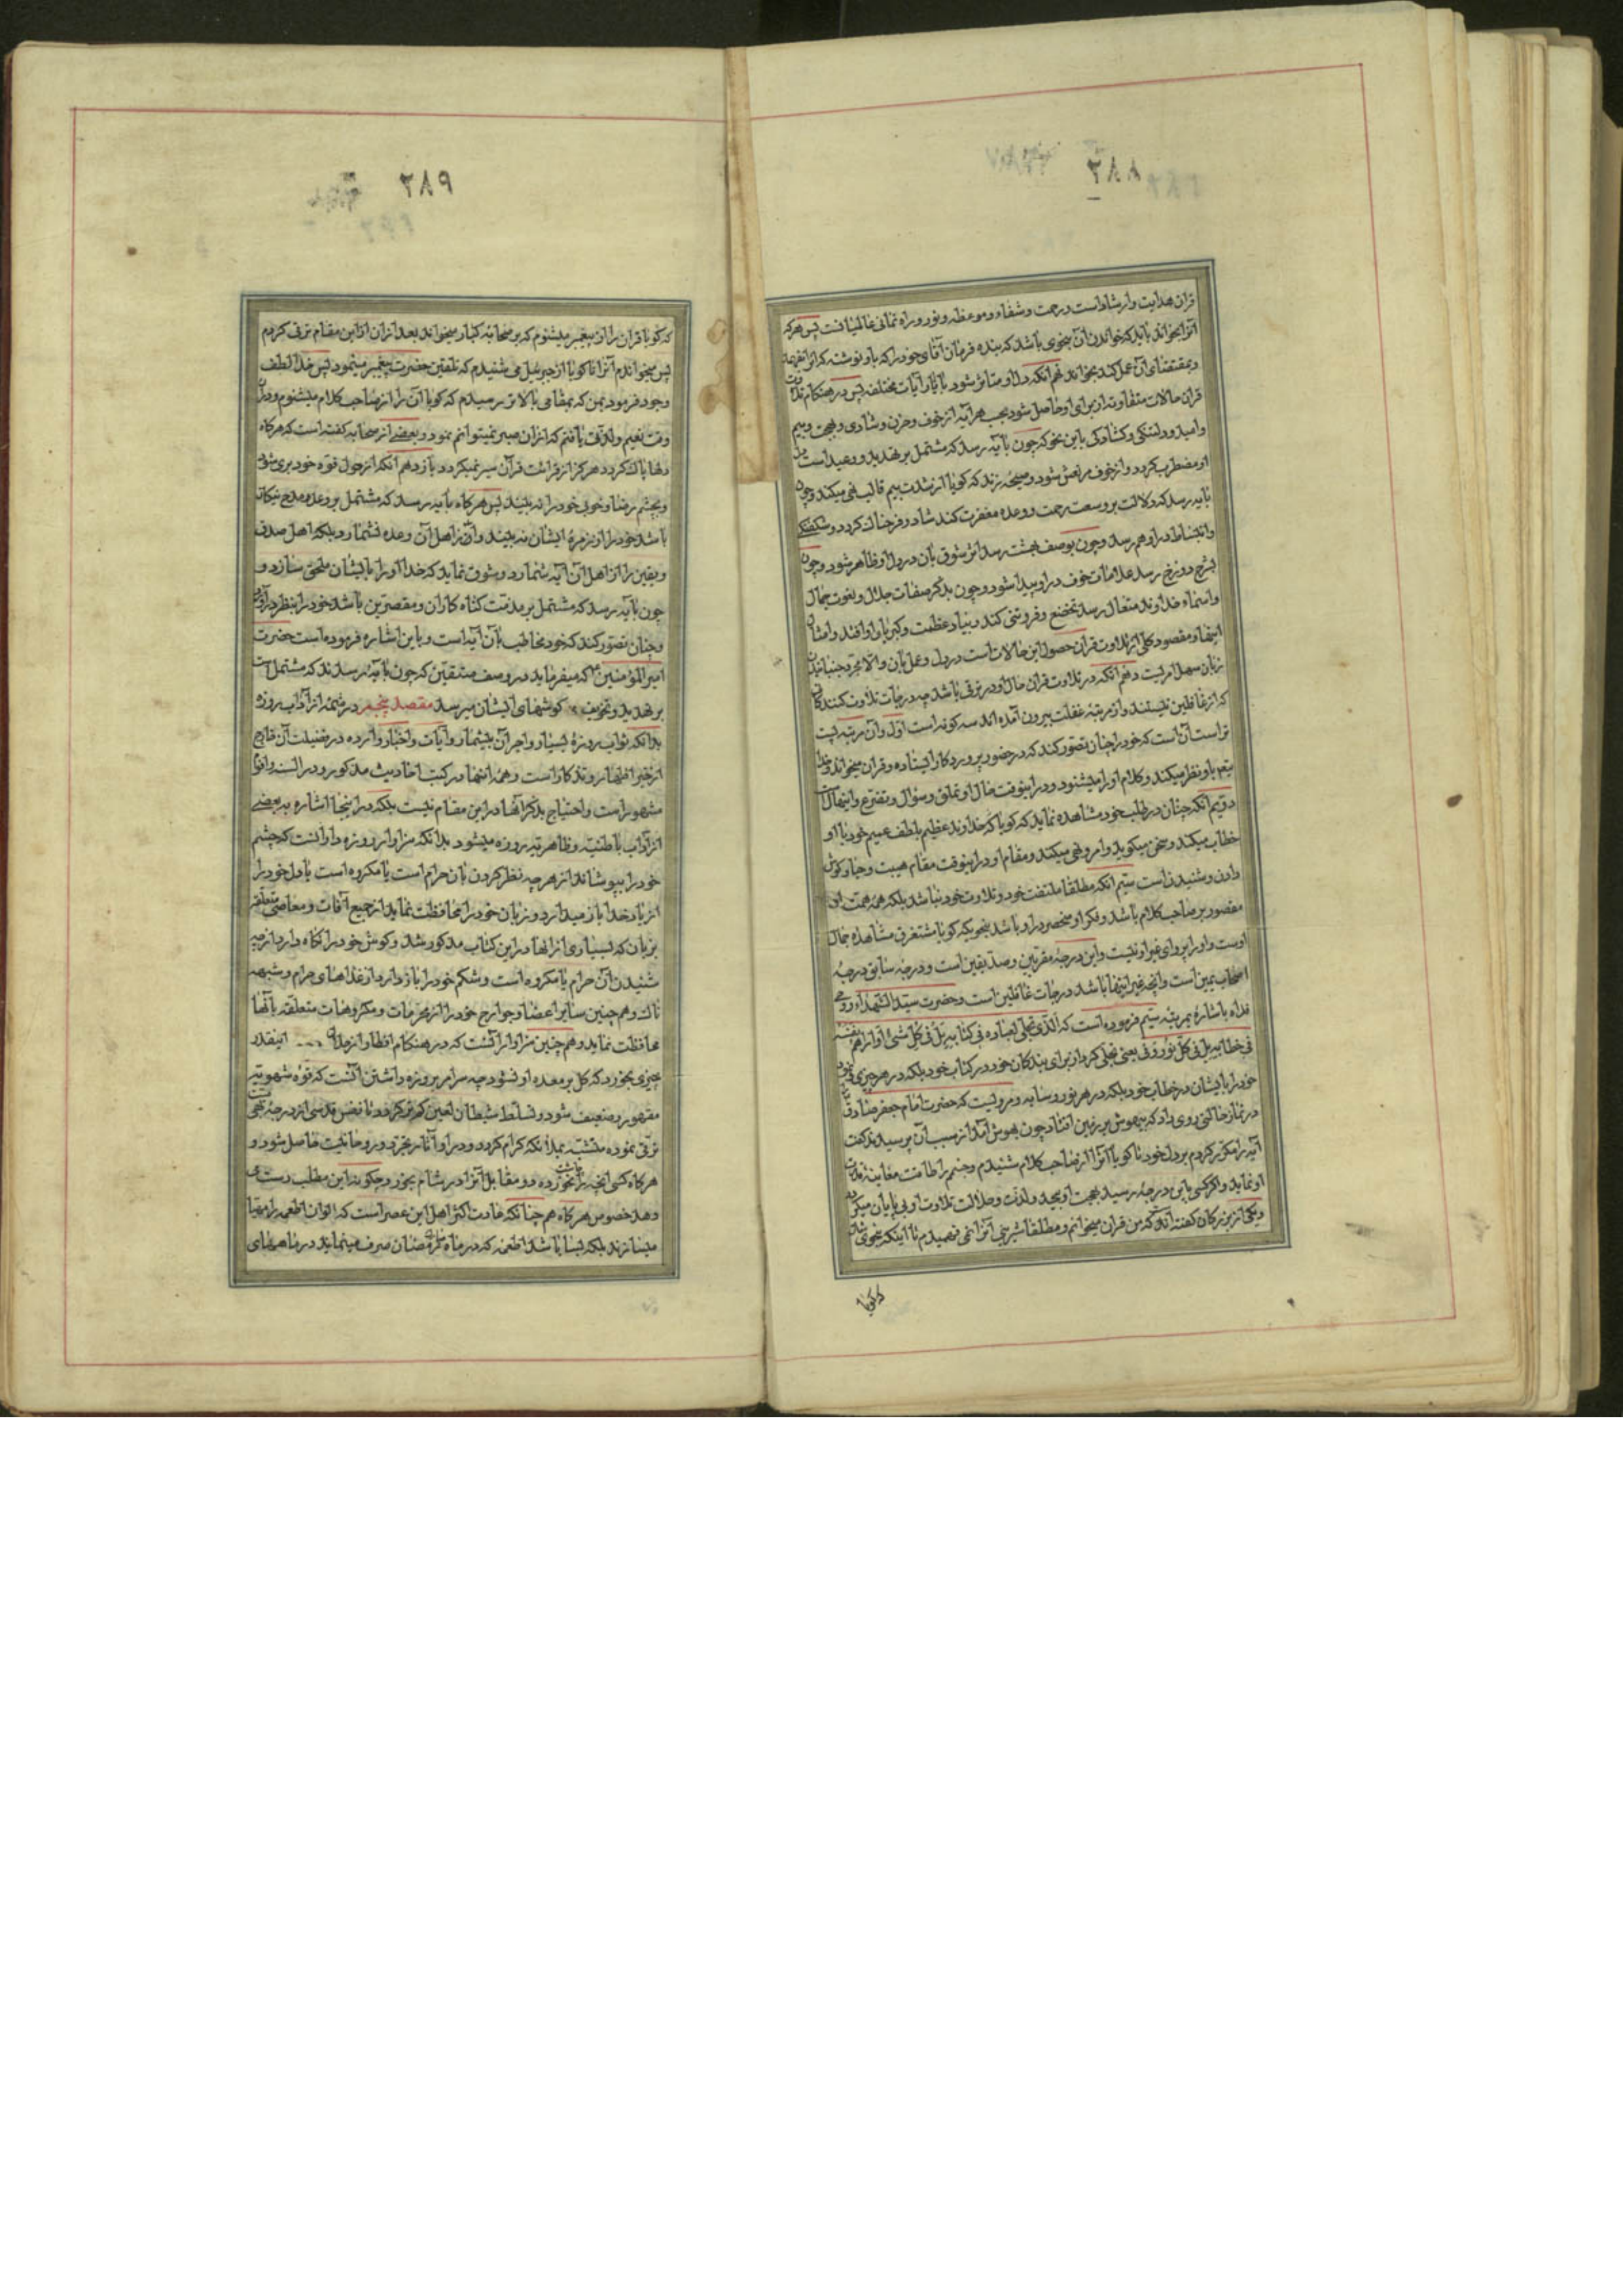 ۲۸۸
قران هدایت وارشاد است ورحمت وشفاء وموعظه ونور وراه نمائی عالمیانست پس هر که
آنرا بخواند باید که خواندن آن بنحوی باشد که بنده فرمان آقای خود را که باو نوشته که
وبمقتضای آن عمل کند بخواند نهم آنکه دل او متاثر شود باثار آیات مختلفه پس در هنکام تلاوت
قران حالات متفاوته از برای او حاصل شود بحسب هر آیه از خوف وحزن وشادی وبهجت وبیم
وامید ودلتنکی وکشادکی باین نحو که چون بآیه رسد که مشتمل بر تهدید ووعید است دل
او مضطرب کردد واز خوف مرتعش شود وصیحه زند که کویا از شدت بیم قالب تهی میکند وچون
بآیه رسد که دلالت بر وسعت رحمت ووعده مغفرت کند شاد وفرحناک کردد وشکفتکی
وانبساط در او بهم رسد وچون بوصف بهشت رسد اثر شوق بآن در دل او ظاهر شود وچون
بشرح دوزخ رسد علامات خوف در او پیدا شود وچون بذکر صفات جلال ونعوت جمال
واسماء خداوند متعال رسد تخضع وفروتنی کند وبیاد عظمت وکبریاء او افتد وامثال
اینها ومقصود کلی از تلاوت قران حصول این حالات است در دل وعمل بآن والا مجرد جنبانیدن
زبان سهل امریست دهم آنکه در تلاوت قران حال او در ترقی باشد چه درجات تلاوت کنندکان
که از غافلین نیستند واز مرتبه غفلت بیرون آمده اند سه کونه است اول وآن مرتبه پست
تر است آن است که خود را چنان تصور کند که در حضور پروردکار ایستاده وقران میخواند وخدا
باو نظر میکند وکلام او را میشنود ودر اینوقت حال او تملق وسؤال وتضرع وابتهال است
دویم آنکه چنان در قلب خود مشاهده نماید که کویا که خداوند عظیم بلطف عمیم خود با او
خطاب میکند وسخن میکوید وامر ونهی میکند ومقام او در اینوقت مقام هیبت وحیا وکوش
دادن وشنیدن است سیم آنکه مطلقا ملتفت خود وتلاوت خود نباشد بلکه همه همت او
مقصور بر صاحب کلام باشد وفکر او منحصر در او باشد بنحویکه کویا مستغرق مشاهده جمال
اوست واو را پروای غیر او نیست واین درجه مقربین وصدیقین است ودرجه سابق درجه
اصحاب یمین است وانچه غیر اینها باشد درجات غافلین است وحضرت سید الشهداء روحی
فداه باشاره بمرتبه سیم فرموده است که الذی تجلی لعباده فی کتابه بل فی کل شئ واراهم نفسه
فی خطابه بل فی کل نور وفئ یعنی تجلی کرد از برای بندکان خود در کتاب خود بلکه در هر چیزی ونمود
خود را بایشان در خطاب خود بلکه در هر نور وسایه ومرویست که حضرت امام جعفر صادق
در نماز حالتی روی داد که بیهوش بر زمین افتاد چون بهوش آمد از سبب آن پرسیدند کفت
آیه را مکرر کردم بر دل خود تا کویا آنرا از صاحب کلام شنیدم وجسم را طاقت معاینه قدرت
او نماند واکر کسی باین درجه رسید بهجت او بیحد ولذت وحلاوت تلاوت او بی پایان میکردد
ویکی از بزرکان کفته است که من قران میخواندم ومطلقا شیرینی آنرا نمی فهمیدم تا اینکه بنحوی شد
که کویا
۲۸۹
که کویا قران را از پیغمبر میشنوم که بر صحابه کبار میخواند بعد از آن از این مقام ترقی کردم
پس میخواندم آنرا تا کویا از جبرئیل می شنیدم که تلقین حضرت پیغمبر مینمود پس خدا لطف
وجود فرمود بمن که بمقامی بالاتر رسیدم که کویا آن را از صاحب کلام میشنوم ودر آن
وقت نعیم ولذتی یافتم که از آن صبر نمیتوانم نمود وبعضی از صحابه کفته است که هر کاه
دلها پاک کردد هر کز از قرائت قرآن سیر نمیکردد یازدهم آنکه از حول قوه خود بری شود
وبچشم رضا وخوبی خود را نه بیند پس هر کاه بآیه رسد که مشتمل بر وعده ومدح نیکان
باشد خود را در زمره ایشان نه بیند وآنرا اهل آن وعده نشمارد وبلکه اهل صدق
ویقین را از اهل آن آیه شمارد وشوق نماید که خدا او را بایشان ملحق سازد و
چون بآیه رسد که مشتمل بر مذمت کناه کاران ومقصرین باشد خود را بنظر در آورد
وچنان تصور کند که خود مخاطب بآن آیه است وباین اشاره فرموده است حضرت
امیر المؤمنین ع که میفرماید در وصف متقین که چون بآیه رسند که مشتمل است
بر تهدید وتخویف کوشهای ایشان میرسد مقصد پنجم در شمه از آداب روزه
بدانکه ثواب روزه بسیار واجر آن بیشمار وآیات واخبار وارده در فضیلت آن خارج
از حیز اظهار وتذکار است وهمه اینها در کتب احادیث مذکور ودر السنه وافواه
مشهور است واحتیاج بذکر آنها در این مقام نیست بلکه در اینجا اشاره به بعضی
از آداب باطنیه وظاهریه روزه میشود بدانکه سزاوار روزه دار آنست که چشم
خود را بپوشاند از هر چه نظر کردن بآن حرام است یا مکروه است یا دل خود را
از یاد خدا باز میدارد وزبان خود را محافظت نماید از جمیع آفات ومعاصی متعلقه
بزبان که بسیاری از انها در این کتاب مذکور شد وکوش خود را نکاه دارد از هر چه
شنیدن آن حرام یا مکروه است وشکم خود را باز دارد از غذاهای حرام وشبهه
ناک وهم چنین سایر اعضا وجوارح خود را از محرمات ومکروهات متعلقه بآنها
محافظت نماید وهم چنین سزاوار آنست که در هنکام افطار از حلال اینقدر
چیزی بخورد که کل بر معده او نشود چه سر امر بروزه داشتن آنست که قوه شهویه
مقهور وضعیف شود وتسلط شیطان لعین کم تر کردد تا نفس قدسی از درجه بهیمیت
ترقی نموده متشبه بملائکه کرام کردد ودر او آثار تجرد وروحانیت حاصل شود و
هر کاه کسی انچه را چاشت نخورده در مقابل آنرا در شام بخورد چکونه این مطلب دست می
دهد خصوص هر کاه هم چنانکه عادت اکثر اهل این عصر است که الوان اطعمه را مهیا
میسازند بلکه بسا باشد اطعمه که در ماه مبارک رمضان صرف مینماید در ماههای